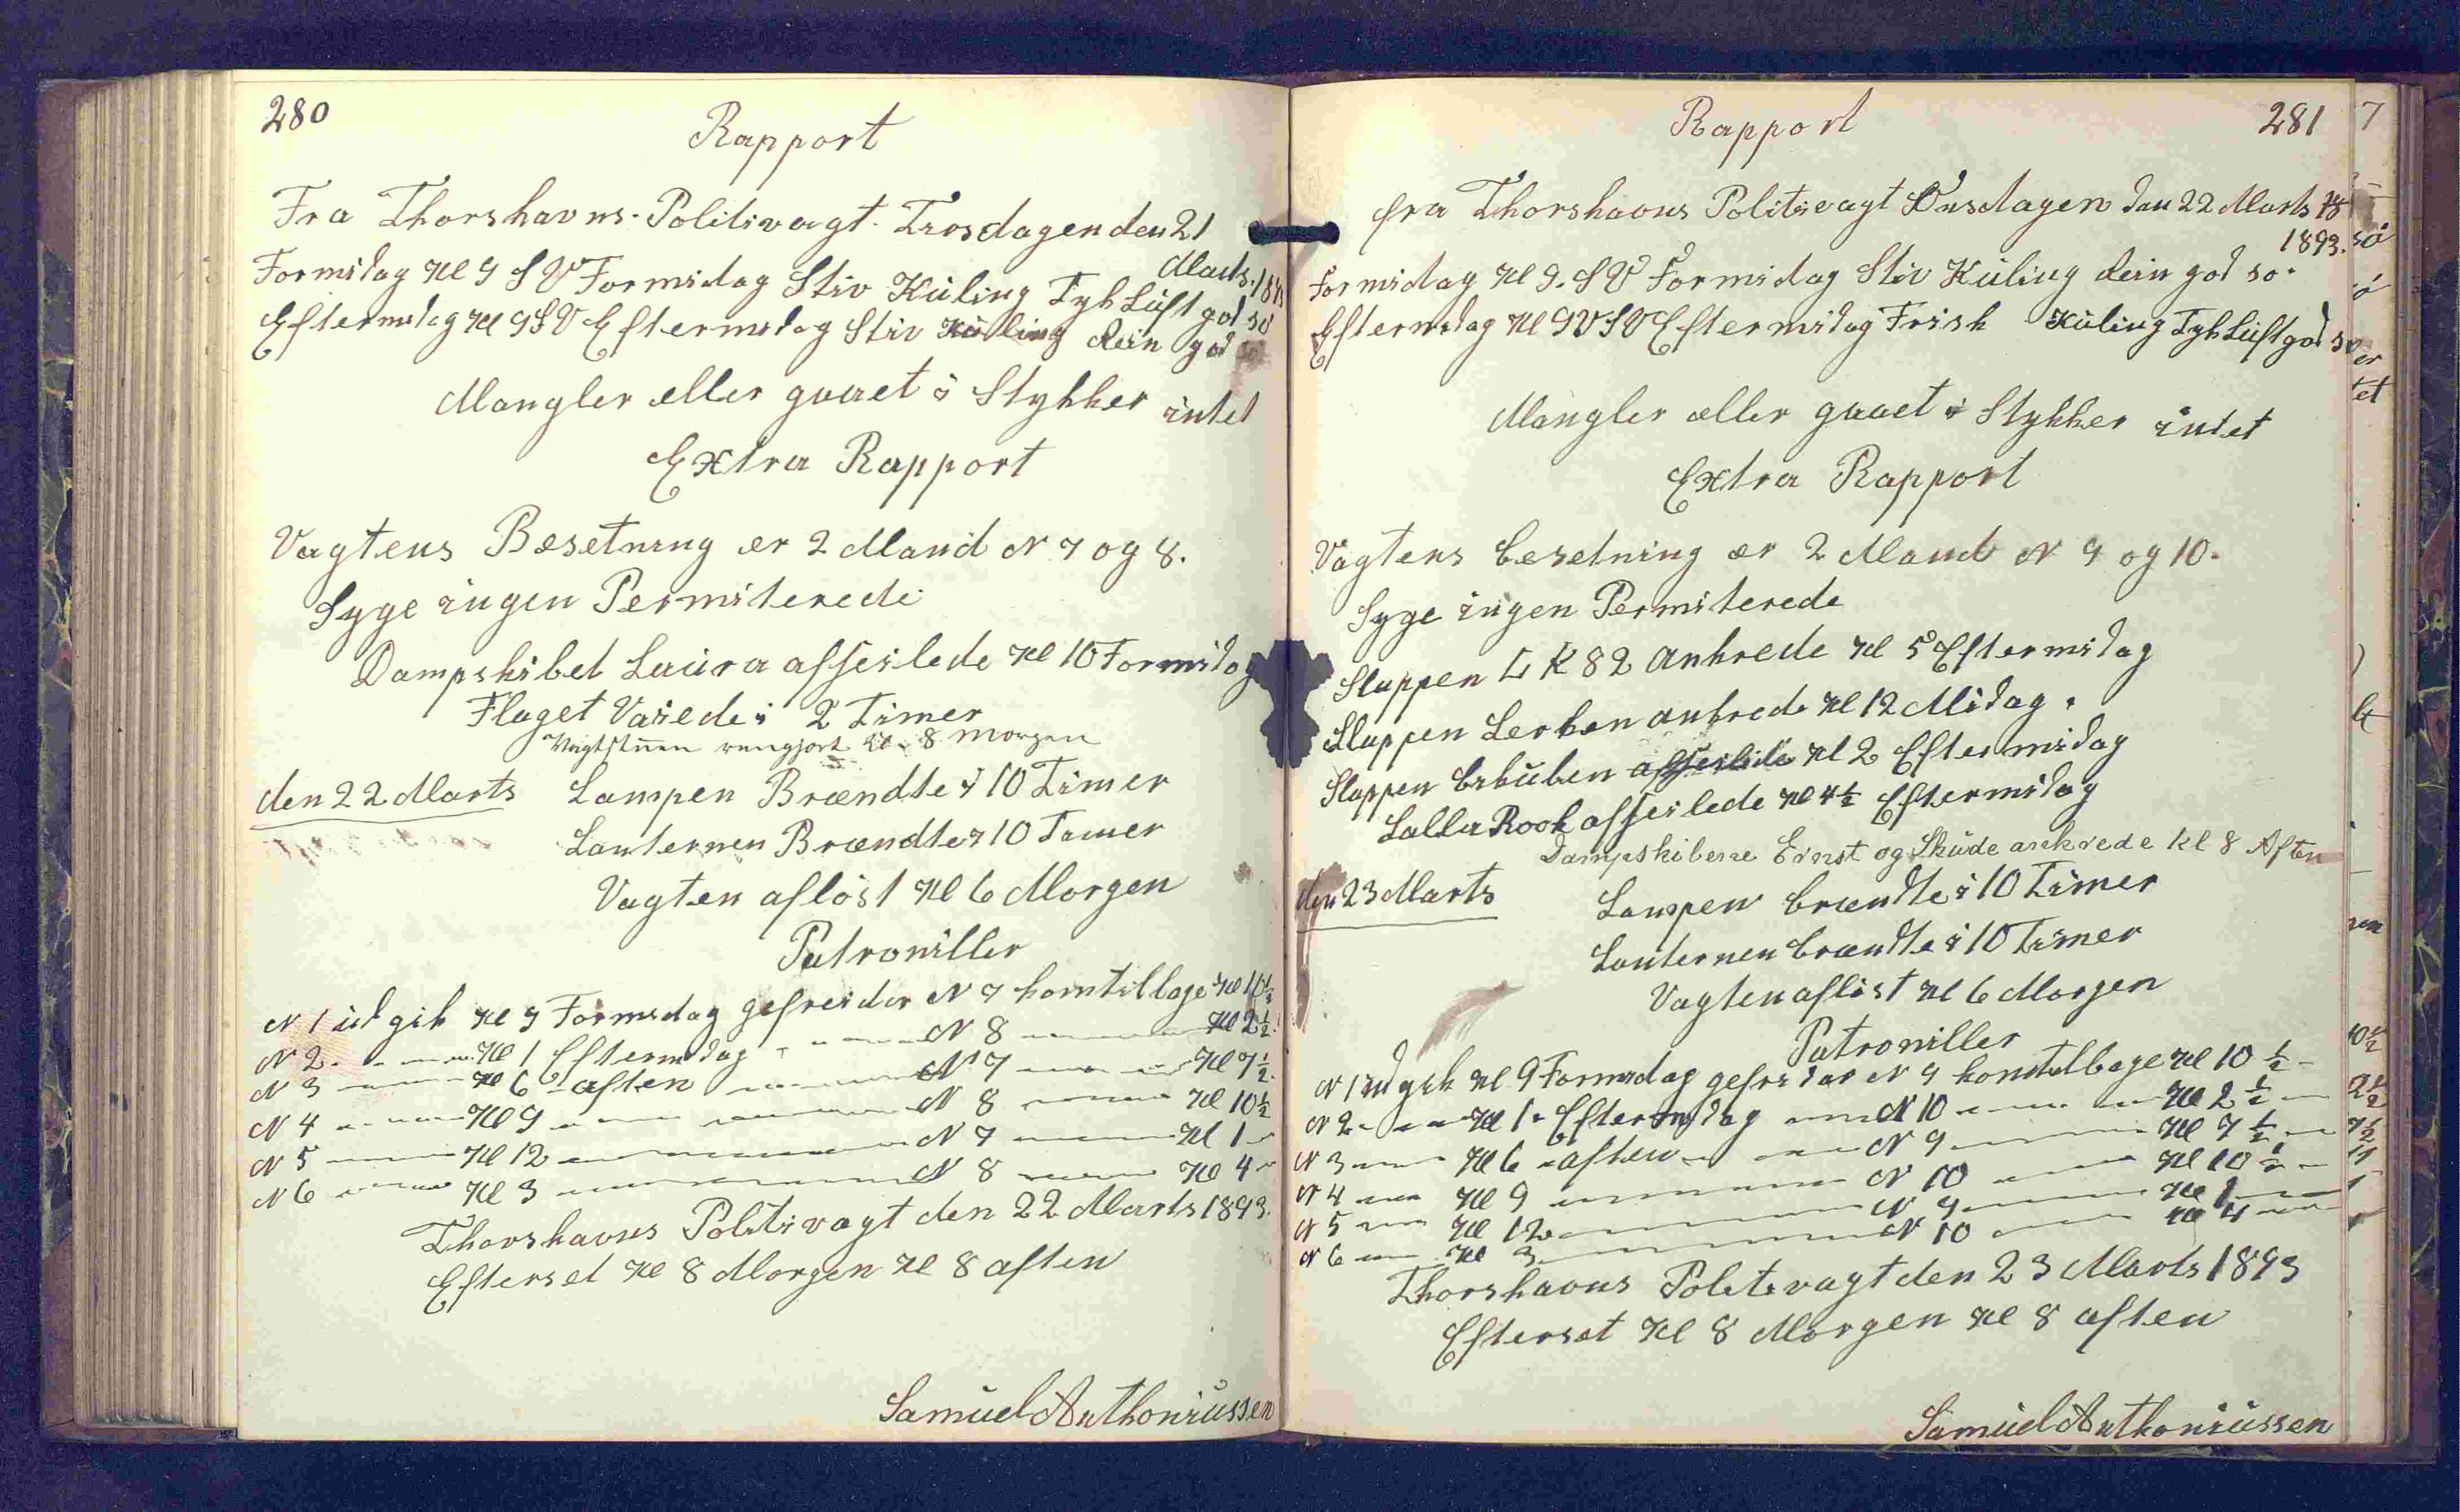 280
Rapport
Fra Thorshavns Politivagt Tirosdagen den 21
Marts 189
Formidag Kl 9 SV Formidag Stiv Kúling Tyk Lúft god sö
Eftermidag Kl 9 SV Eftermidag Stiv Kúling Rein god sö
Mangler eller gaaet i Stykker intet
Extra Rapport
Vagtens Besetning er 2 Mand N 7 og 8.
Syge ingen Permiterede
Dampskibet Laúra afseilede Kl 10 Formidag
Flaget Vaiede i 2 Timer
Vagtstúen rengjort Kl. 8 Morgen
den 22 Marts Lampen Brændte i 10 Timer
Lanternen Brændte i 10 Timer
Vagten aflöst Kl 6 Morgen
Patroniller
N 1 úd gik Kl 9 Formidag gefreider N 7 kom tilbage Kl 10½
N 2 Kl 1 Eftermidag N 8 Kl 2½
N 3 Kl 6 aften N 7 Kl 7½
N 4 Kl 9 N 8 Kl 10½
N 5 Kl 12 N 7 Kl 1
N 6 Kl 3 N 8 Kl 4
Thorshavns Politivagt den 22 Marts 1893.
Efterset Kl 8 Morgen Kl 8 aften
Samúel Anthoniússen
Rapport 281
fra Thorshavns Politivagt Onsdagen den 22 Marts 18
1893.
Formidag Kl 9. SV Formidag Stiv Kúling Rein god sö.
Eftermidag Kl 9 VSV Eftermidag Frisk Kúling Tyk Lúft god sö
Mangler eller gaaet i Stykker intet
Extra Rapport
Vagtens besetning er 2 Mand N 9 og 10.
Syge ingen Permiterede
Sluppen LK 82 ankrede Kl 5 Eftermidag
Sluppen Lerken ankrede Kl 12 Midag.
Sluppen afseilede Kl 2 Eftermidag
Lalla Rook afseilede Kl 4½ Eftermidag
Dampskibene Ernst og Skúde ankrede Kl 8 Aften
den 23 Marts Lampen brændte i 10 Timer
Lanternen brændte i 10 Timer
Vagten aflöst Kl 6 Morgen
Patroniller
N 1 úd gik Kl 9 Formidag gefreidar N 9 kom tilbage Kl 10½
N 2 Kl 1 Eftermidag N 10 Kl 2½
N 3 Kl 6 aften N 9 Kl 7½
N 4 Kl 9 N 10 Kl 10½
N 5 Kl 12 N 9 Kl 1
N 6 Kl 3 N 10 Kl 4
Thorshavns Politivagt den 23 Marts 1893
Efterset Kl 8 Morgen Kl 8 aften
Samúel Anthoniússen